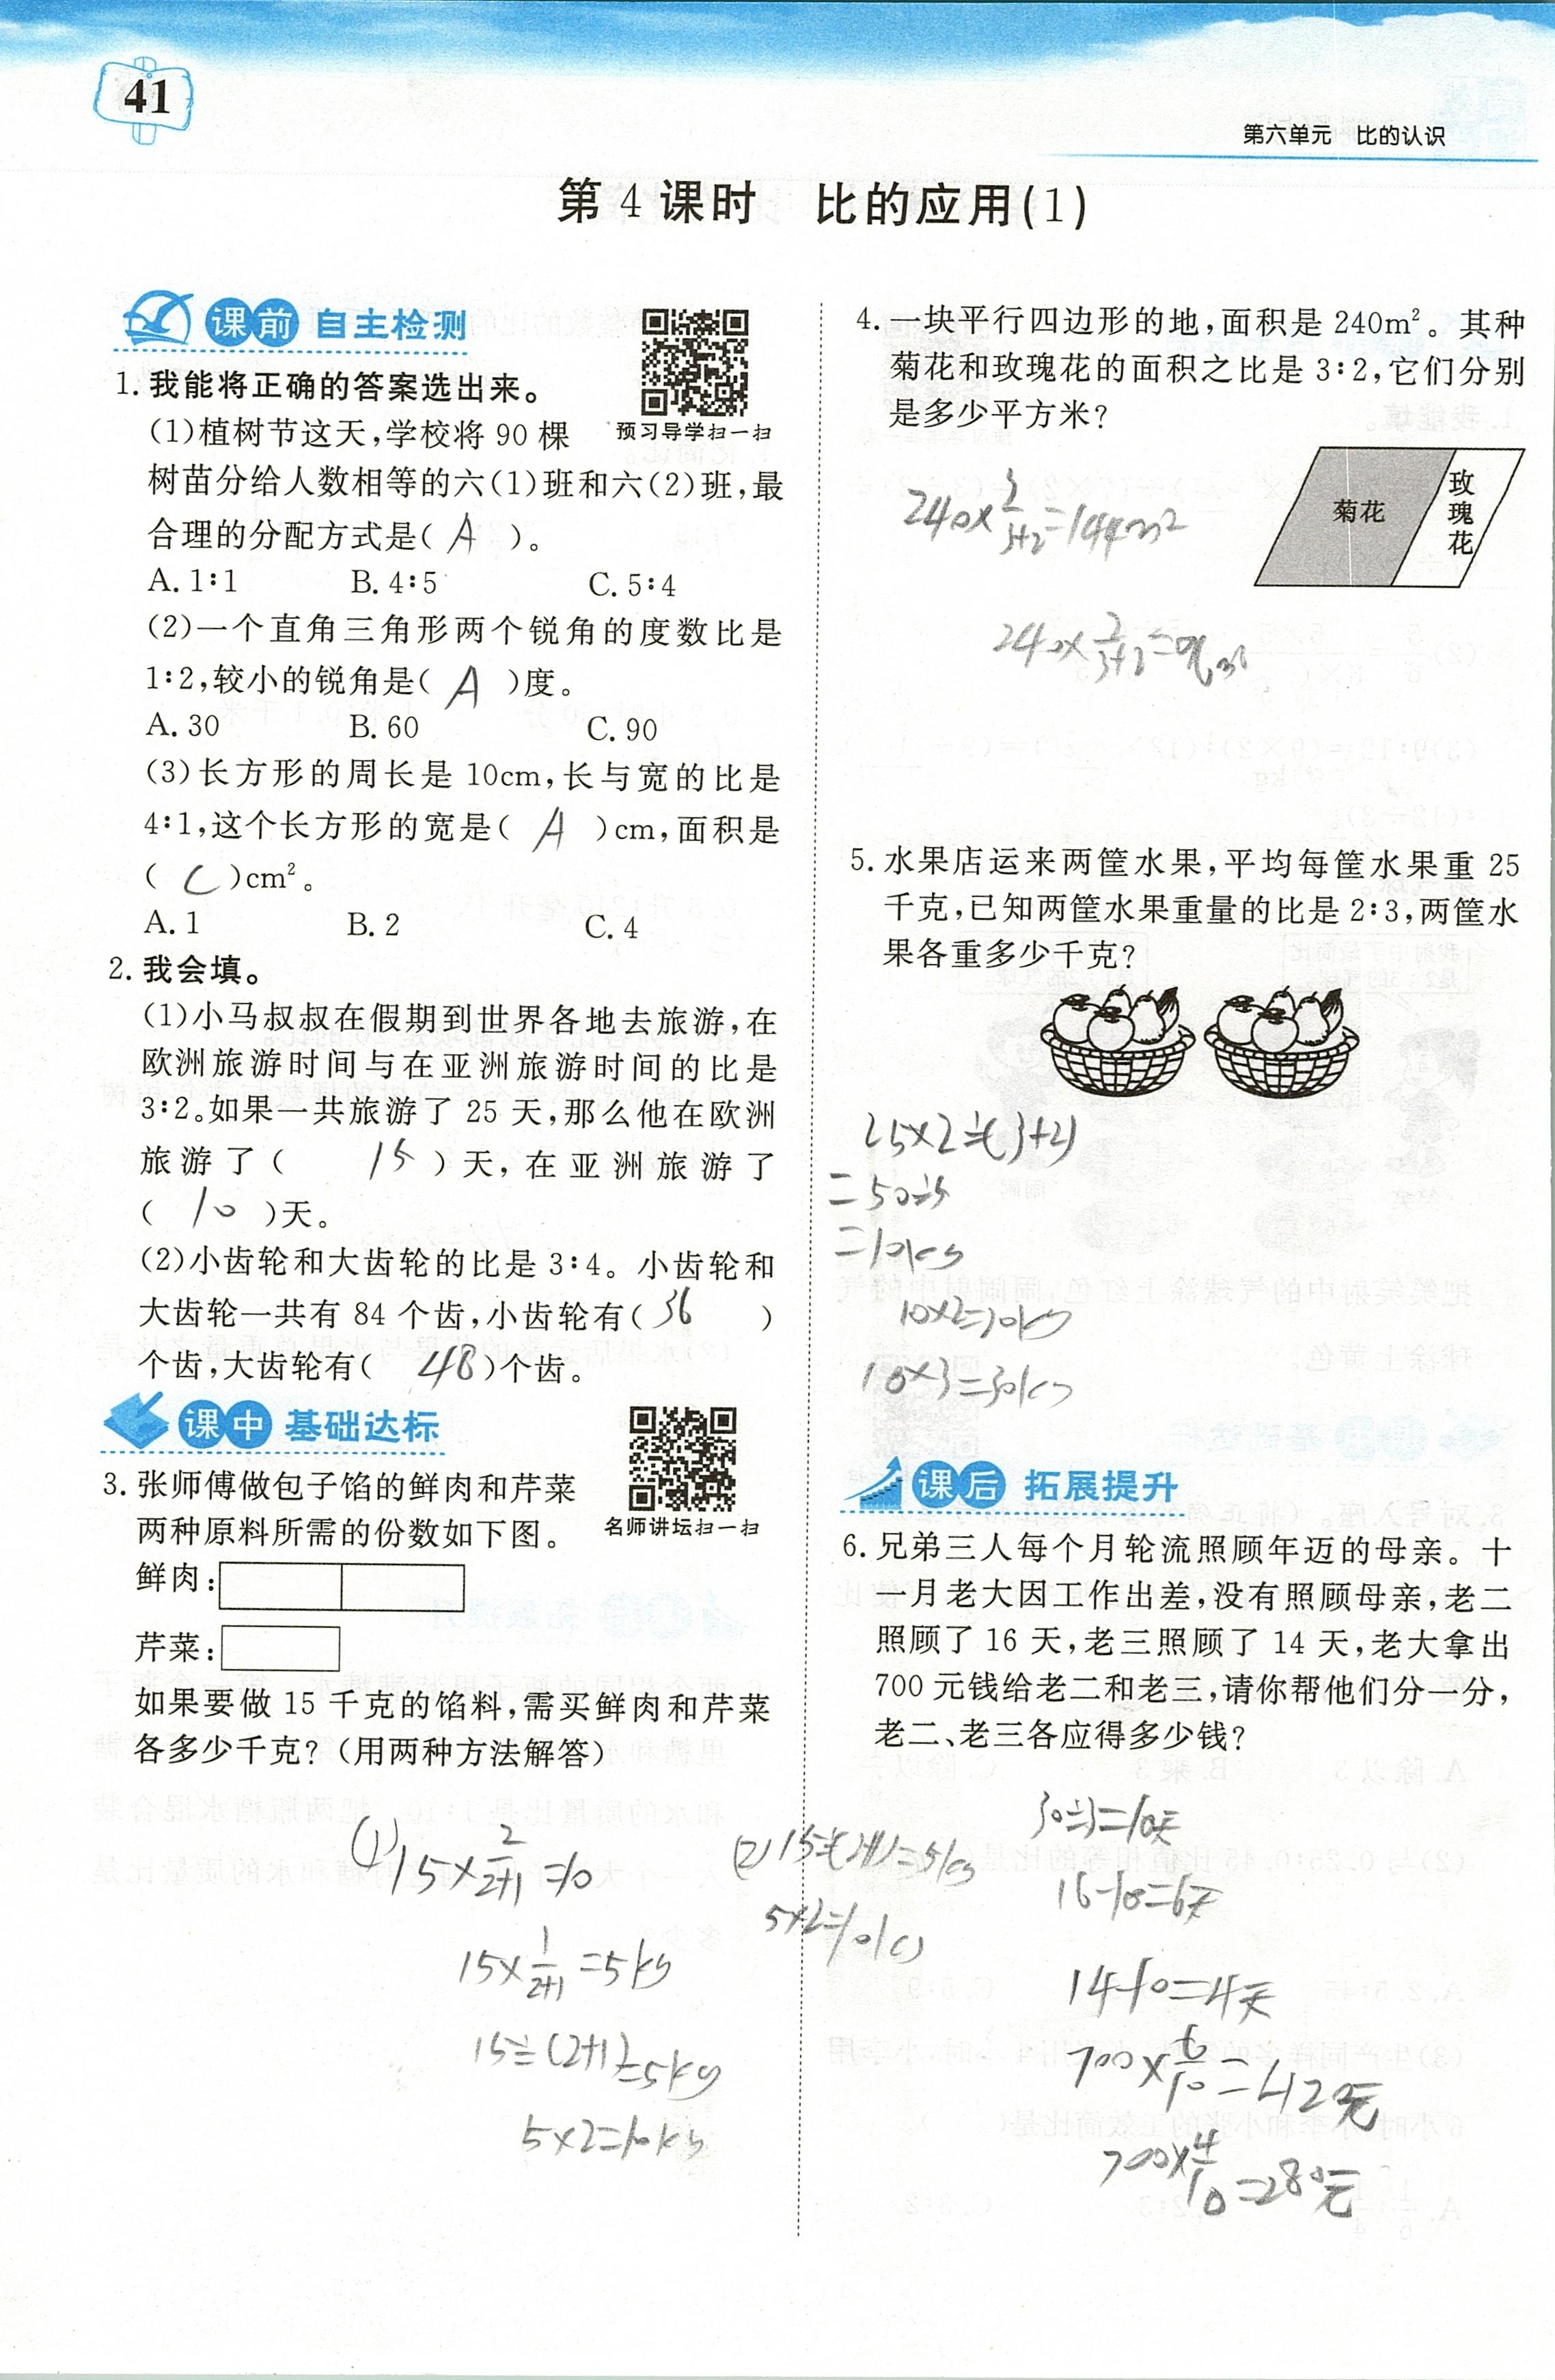 41
第六单元 比的认识
第4课时 比的应用(1)
课前 自主检测
预习导学扫一扫
1. 我能将正确的答案选出来。
(1)植树节这天,学校将90棵
树苗分给人数相等的六(1)班和六(2)班,最
合理的分配方式是( A )。
A. 1∶1 B. 4∶5 C. 5∶4
(2)一个直角三角形两个锐角的度数比是
1∶2,较小的锐角是( A )度。
A. 30 B. 60 C. 90
(3)长方形的周长是10cm,长与宽的比是
4∶1,这个长方形的宽是( A )cm,面积是
( C )cm²。
A. 1 B. 2 C. 4
2. 我会填。
(1)小马叔叔在假期到世界各地去旅游,在
欧洲旅游时间与在亚洲旅游时间的比是
3∶2。如果一共旅游了25天,那么他在欧洲
旅游了( 15 )天,在亚洲旅游了
( 10 )天。
(2)小齿轮和大齿轮的比是3∶4。小齿轮和
大齿轮一共有84个齿,小齿轮有( 36 )
个齿,大齿轮有( 48 )个齿。
课中 基础达标
名师讲坛扫一扫
3. 张师傅做包子馅的鲜肉和芹菜
两种原料所需的份数如下图。
鲜肉:
芹菜:
如果要做15千克的馅料,需买鲜肉和芹菜
各多少千克?(用两种方法解答)
(1) 15×2/(2+1)=10
15×1/(2+1)=5kg
15÷(2+1)=5kg
5×2=10kg
(2) 15÷(2+1)=5kg
5×2=10kg
4. 一块平行四边形的地,面积是240m²。其种
菊花和玫瑰花的面积之比是3∶2,它们分别
是多少平方米?
菊花
玫瑰花
240×3/(3+2)=144m²
240×2/(3+2)=
5. 水果店运来两筐水果,平均每筐水果重25
千克,已知两筐水果重量的比是2∶3,两筐水
果各重多少千克?
25×2÷(3+2)
=50÷5
=10kg
10×2=20kg
10×3=30kg
课后 拓展提升
6. 兄弟三人每个月轮流照顾年迈的母亲。十
一月老大因工作出差,没有照顾母亲,老二
照顾了16天,老三照顾了14天,老大拿出
700元钱给老二和老三,请你帮他们分一分,
老二、老三各应得多少钱?
30÷3=10天
16-10=6天
14-10=4天
700×6/10=420元
700×4/10=280元